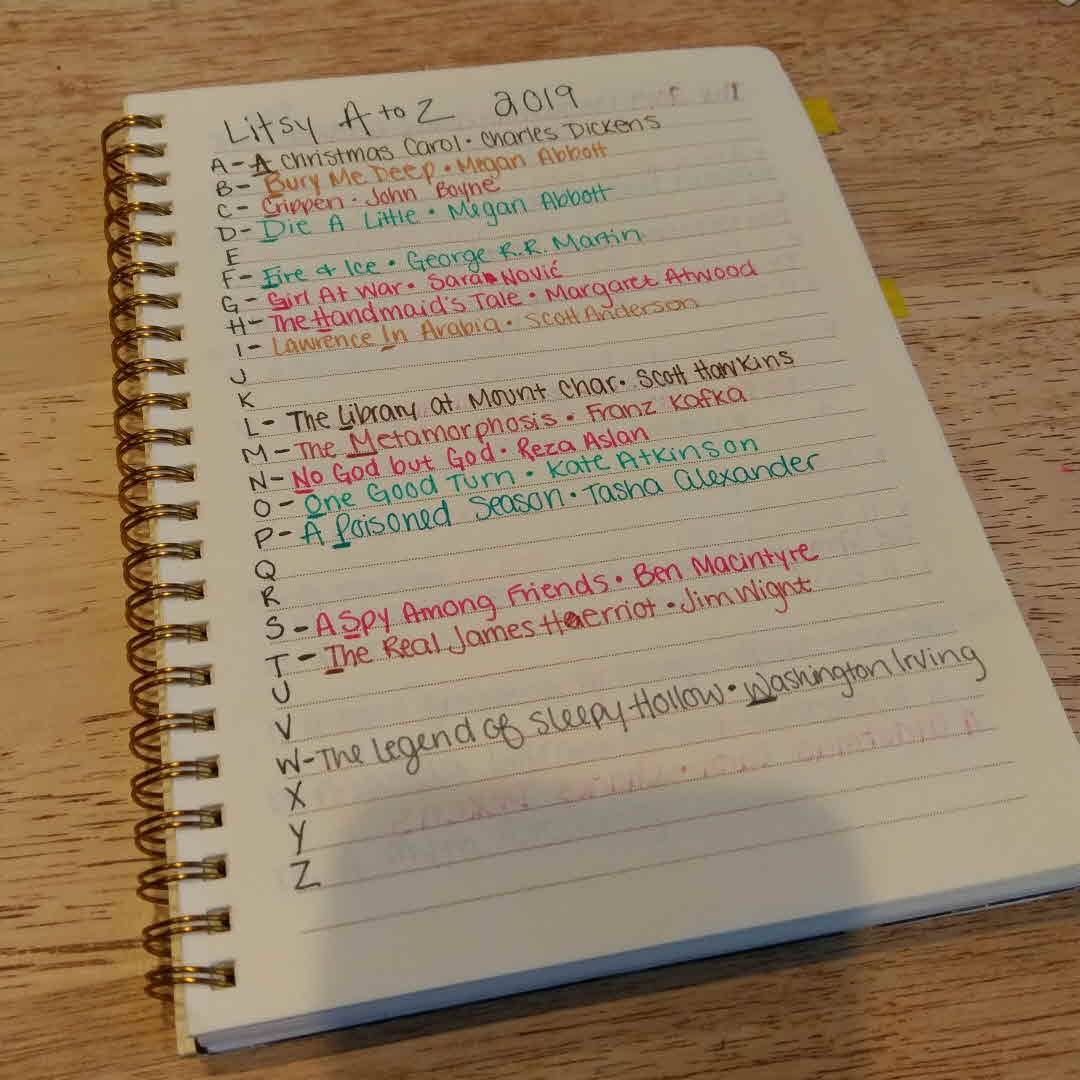 Litsy A to Z 2019
A - A Christmas Carol • Charles Dickens
B - Bury Me Deep • Megan Abbott
C - Crippen • John Boyne
D - Die A Little • Megan Abbott
E
F - Fire & Ice • George R.R. Martin
G - Girl At War • Sara Nović
H - The Handmaid's Tale • Margaret Atwood
I - Lawrence In Arabia • Scott Anderson
J
K
L - The Library at Mount Char • Scott Hawkins
M - The Metamorphosis • Franz Kafka
N - No God but God • Reza Aslan
O - One Good Turn • Kate Atkinson
P - A Poisoned Season • Tasha Alexander
Q
R
S - A Spy Among Friends • Ben Macintyre
T - The Real James Herriot • Jim Wight
U
V
W - The Legend of Sleepy Hollow • Washington Irving
X
Y
Z